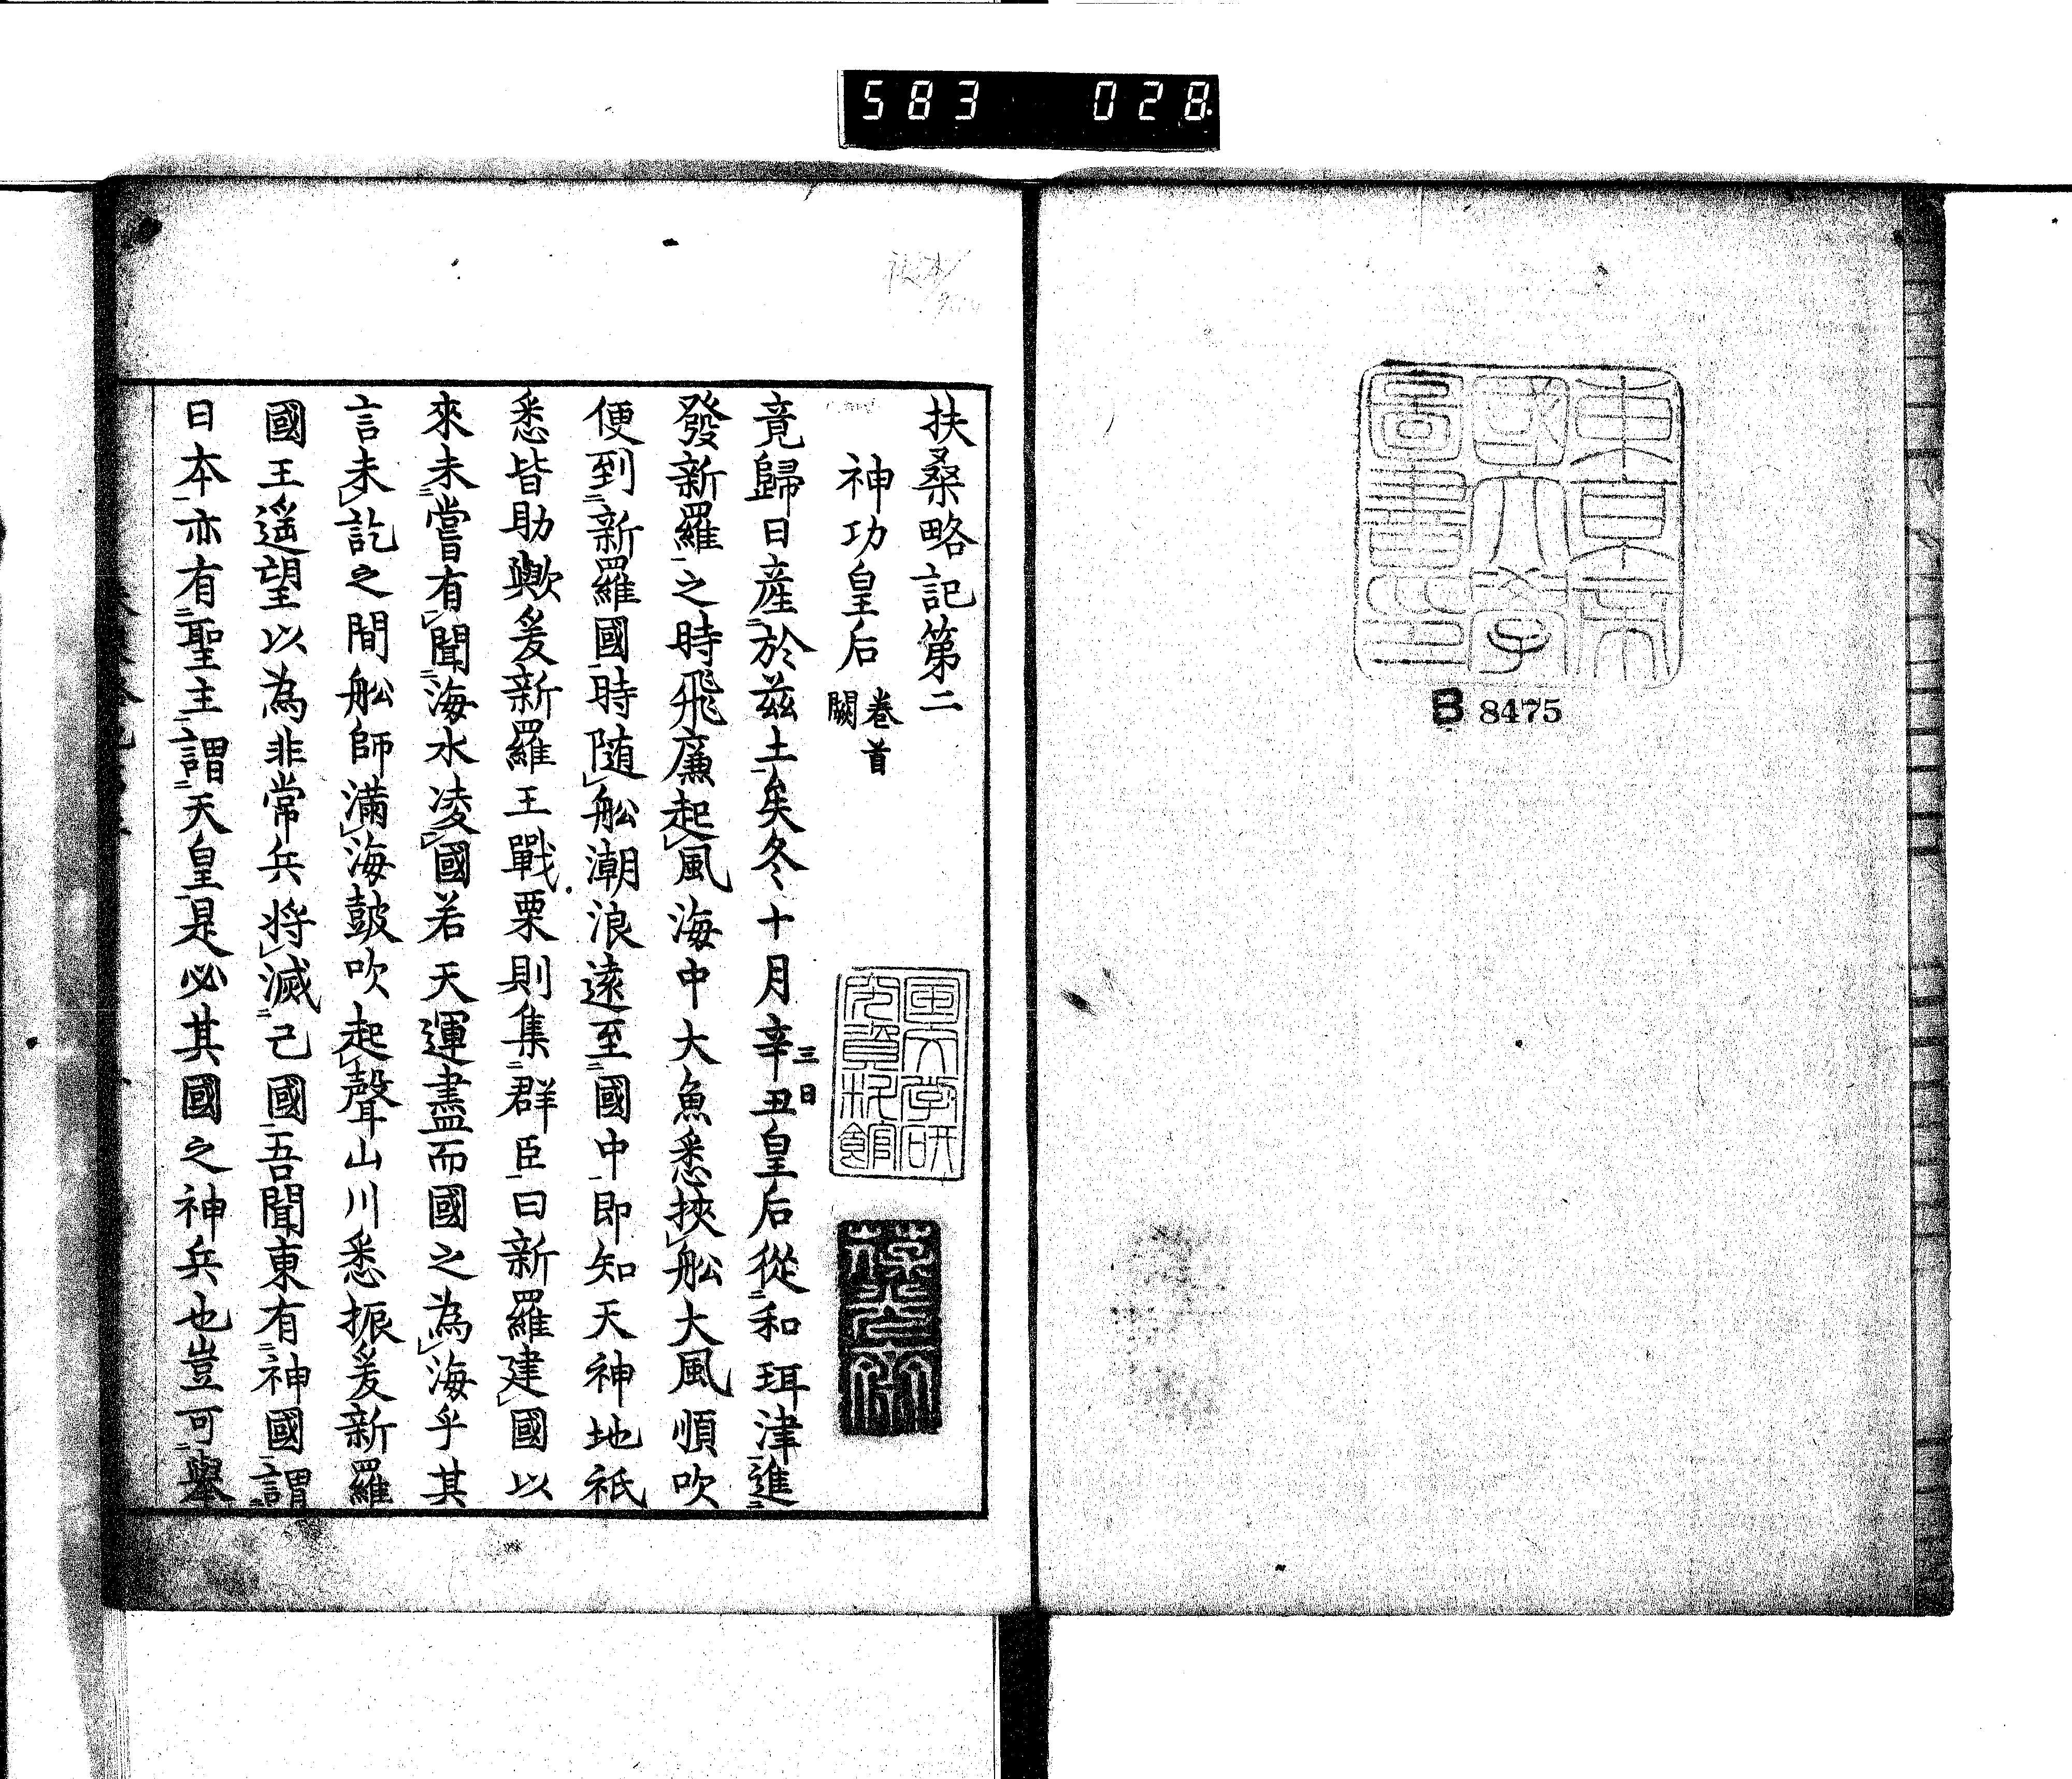 583 028
東京
國大學
圖書印
B 8475
扶桑略記第二
神功皇后 卷首闕
竟歸日産於茲土矣冬十月辛丑三日皇后從和珥津進
發新羅之時飛廉起風海中大魚悉挾舩大風順吹
便到新羅國時随舩潮浪遠至國中即知天神地祇
悉皆助歟爰新羅王戰栗則集群臣曰新羅建國以
來未嘗有聞海水凌國若天運盡而國之為海乎其
言未訖之間舩師滿海皷吹起聲山川悉振爰新羅
國王遥望以為非常兵将滅己國吾聞東有神國謂
日本亦有聖主謂天皇是必其國之神兵也豈可擧